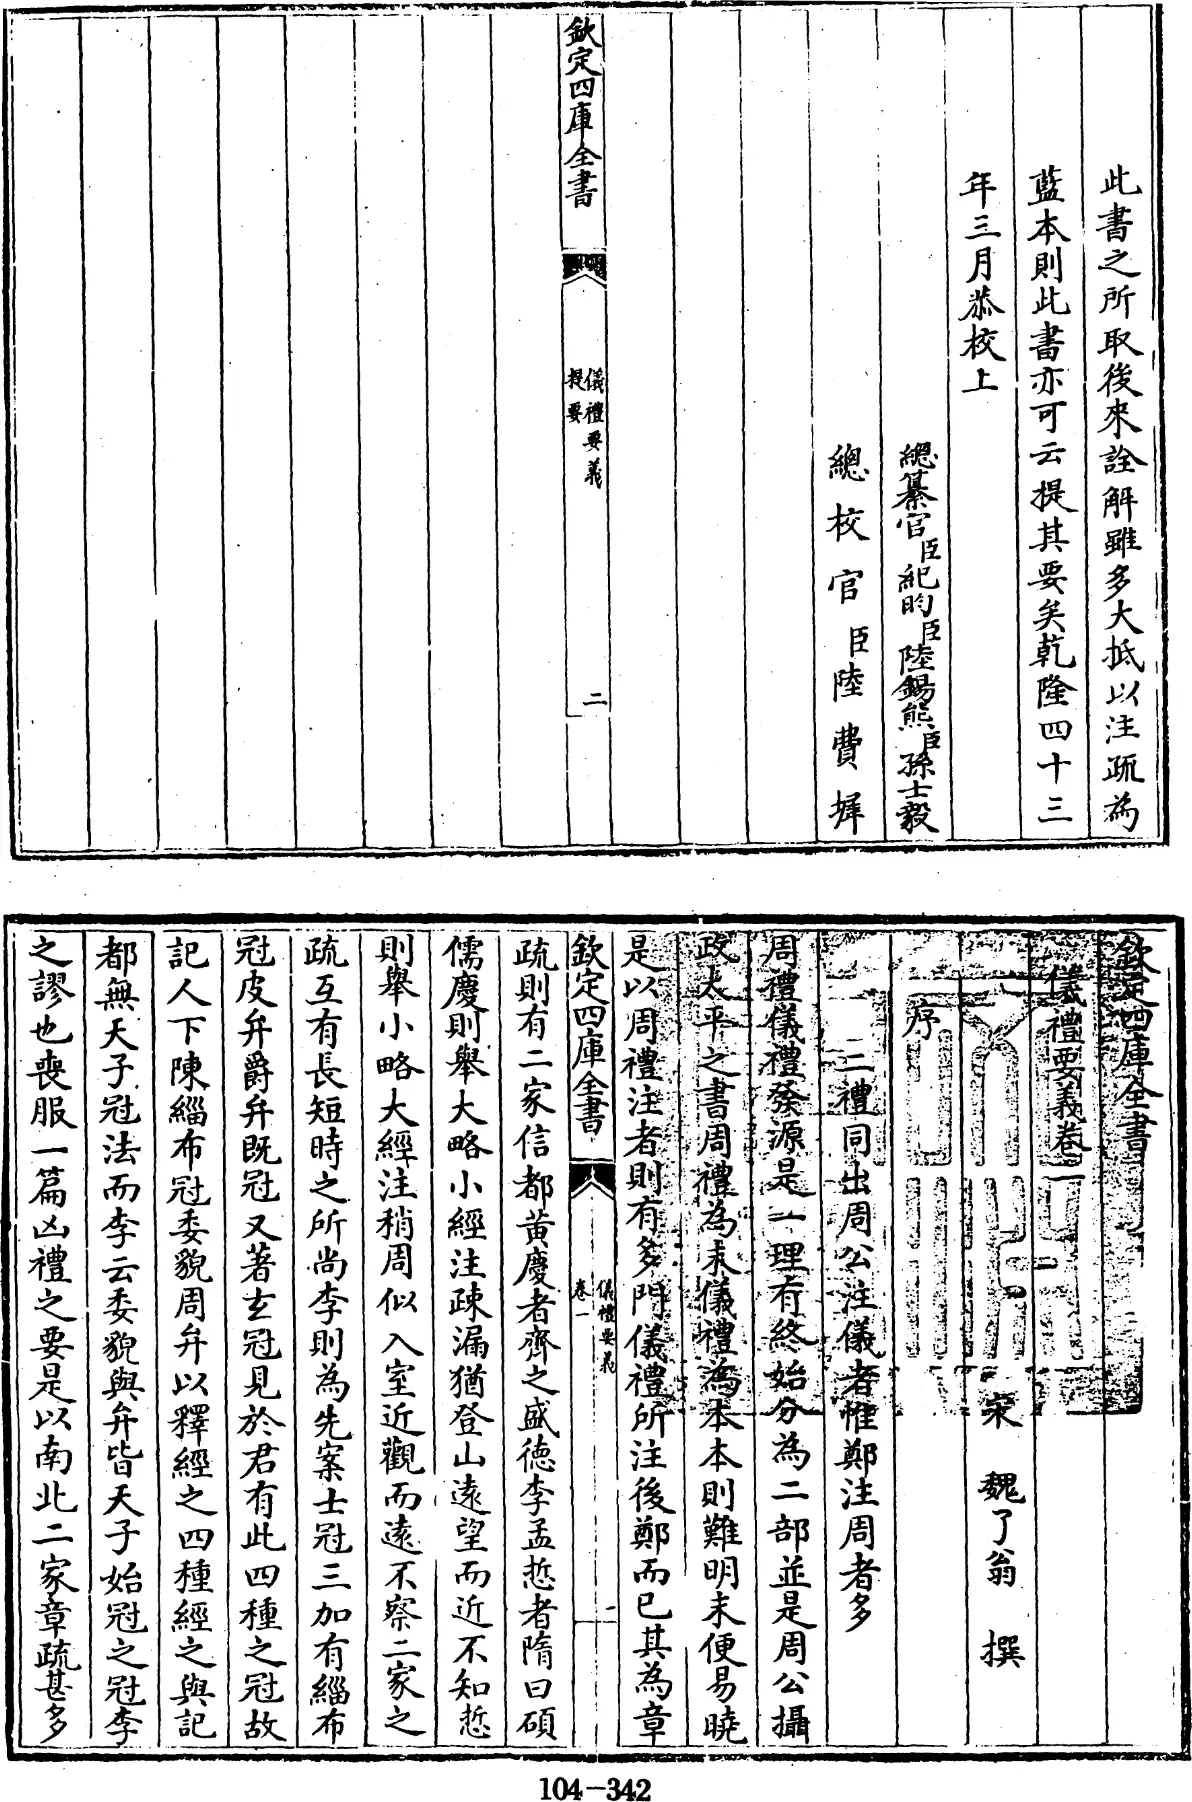 此書之所取後來詮解雖多大抵以注疏為
藍本則此書亦可云提其要矣乾隆四十三
年三月恭校上
總纂官臣紀昀臣陸錫熊臣孫士毅
總校官臣陸費墀
欽定四庫全書
儀禮要義
提要
二
欽定四庫全書
儀禮要義卷一
宋 魏了翁 撰
序
一 三禮同出周公注儀者惟鄭注周者多
周禮儀禮發源是一理有終始分為二部並是周公攝
政太平之書周禮為末儀禮為本本則難明末便易曉
是以周禮注者則有多門儀禮所注後鄭而已其為章
欽定四庫全書
儀禮要義
卷一
一
疏則有二家信都黃慶者齊之盛德李孟悊者隋曰碩
儒慶則舉大略小經注疎漏猶登山遠望而近不知悊
則舉小略大經注稍周似入室近觀而遠不察二家之
疏互有長短時之所尚李則為先案士冠三加有緇布
冠皮弁爵弁既冠又著玄冠見於君有此四種之冠故
記人下陳緇布冠委貌周弁以釋經之四種經之與記
都無天子冠法而李云委貌與弁皆天子始冠之冠李
之謬也喪服一篇凶禮之要是以南北二家章疏甚多
104-342